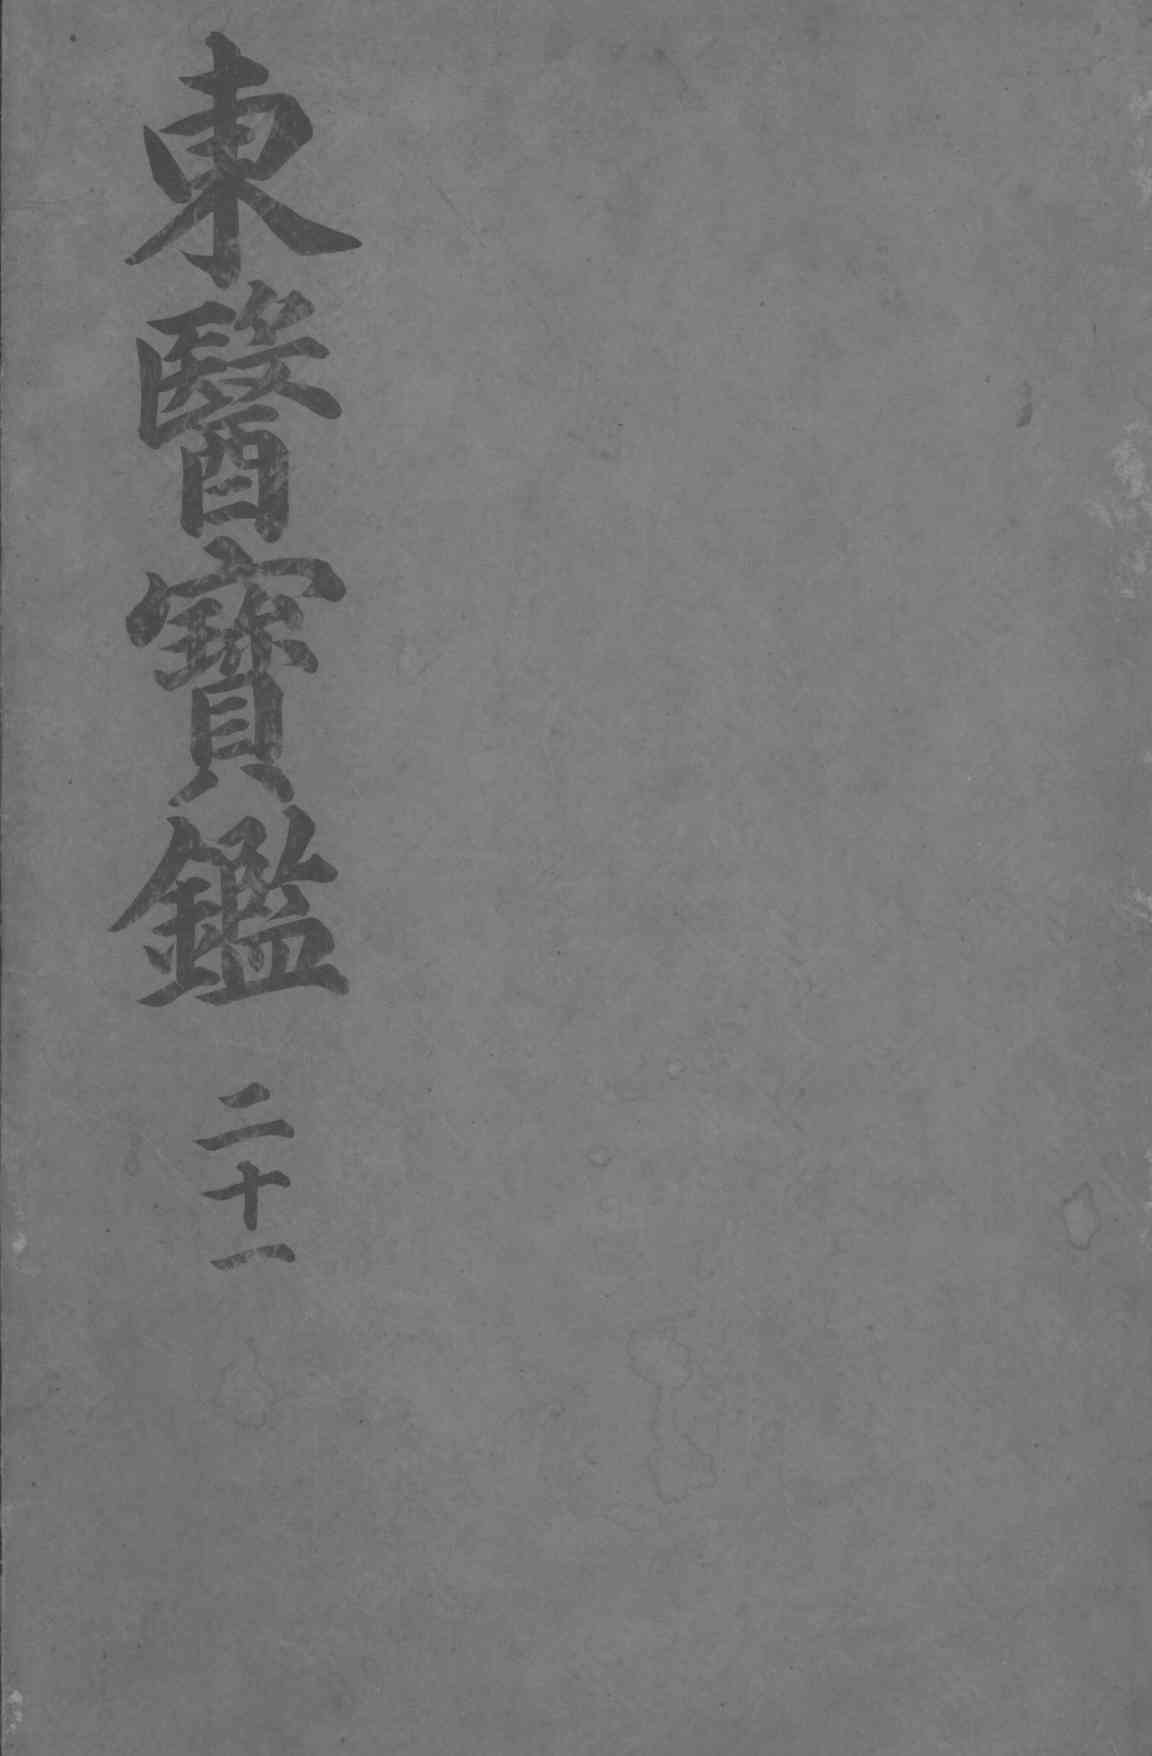 東醫寶鑑 二十一